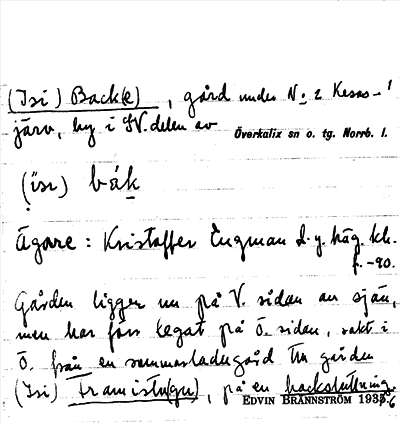 (Isi) Back(e), gård under N:o 2 Kesas-
järv, by i SV. delen av
Överkalix sn o. tg. Norrb. l.
(isi) båk
Ägare: Kristoffer Engman d.y. häg. kh.
f. -90.
Gården ligger nu på V. sidan av sjön,
men har förr legat på Ö. sidan, rakt i
Ö. från en sommarladugård till gården
(Isi) Framistu(gu), på en backsluttning.
EDVIN BRÄNNSTRÖM 1936